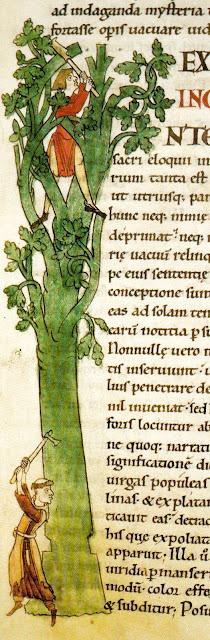 ad indaganda mysteria t
fortasse opis vacuare vid
EX
INC
NTE
sacri eloquii in
rium tanta est
ut utrisq; par
hunc neq; nimie
deprimat neq;
rię vacuū relinq
pe eius sententię
conceptione sunt
eas ad solam ten
tarū notitia p su
Nonnullę vero n
tis inserviunt
lius penetrare de
nil inveniat sed
foris locuntur ab
ne quoq; narrati
significatione di
virgas populeas
linas & ex platan
ticavit eas detrac
his que expoliata
apparuit Illa ū
viridia pmanser
modū color effe
& subditur Posu